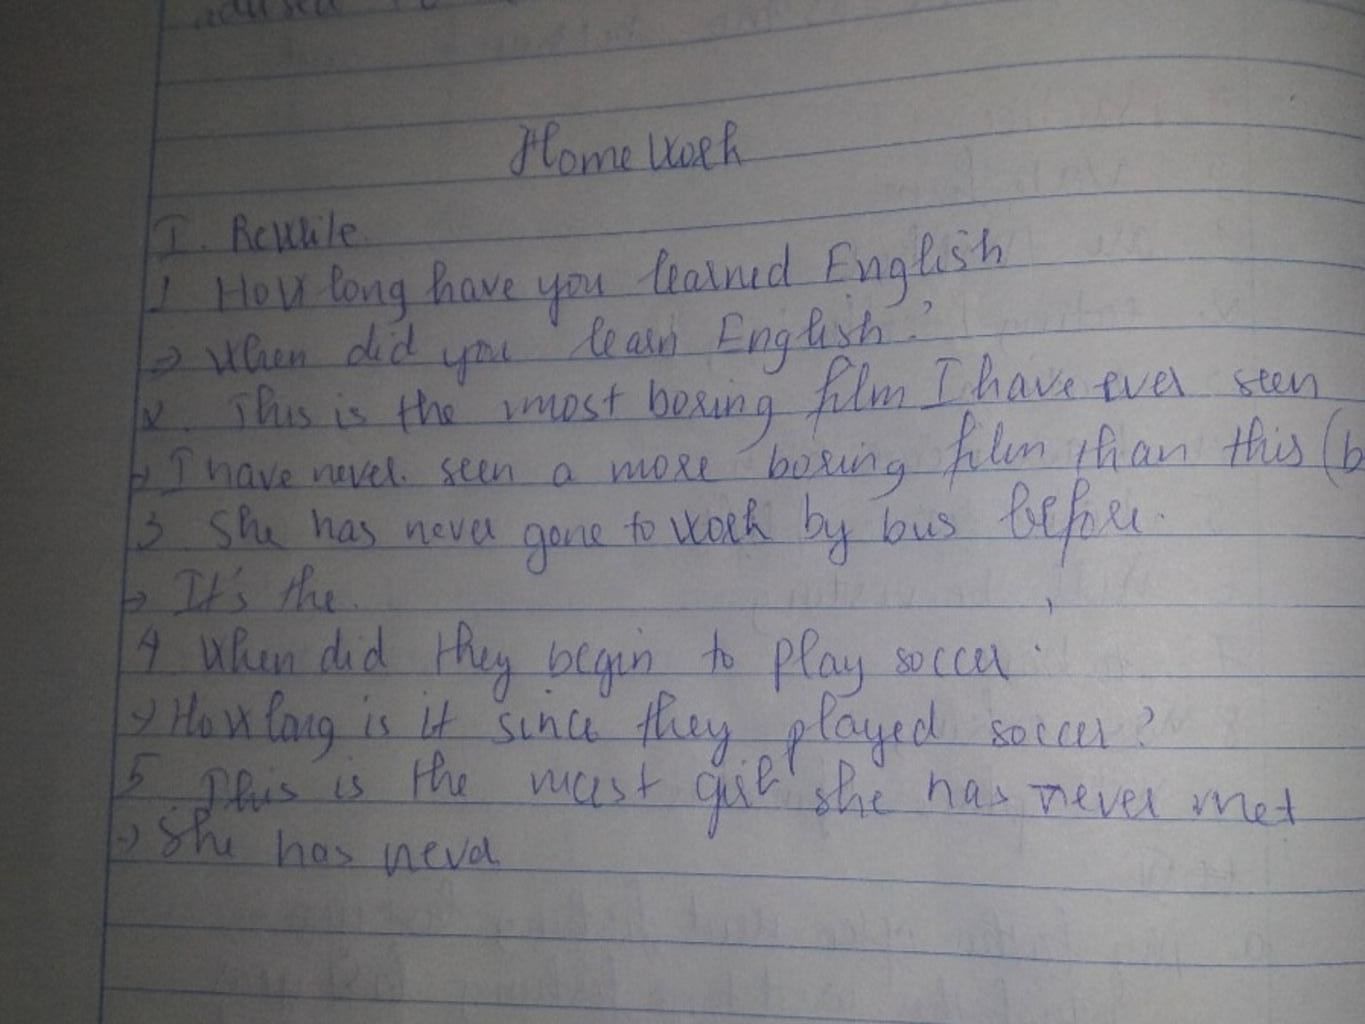 Home Work
I. Rewrite
1 How long have you learned English
→ When did you learn English?
2. This is the most boring film I have ever seen
→ I have never seen a more boring film than this (b
3 She has never gone to work by bus before.
→ It's the
4 When did they begin to play soccer.
→ How long is it since they played soccer?
5 This is the girl she has never met
→ She has never